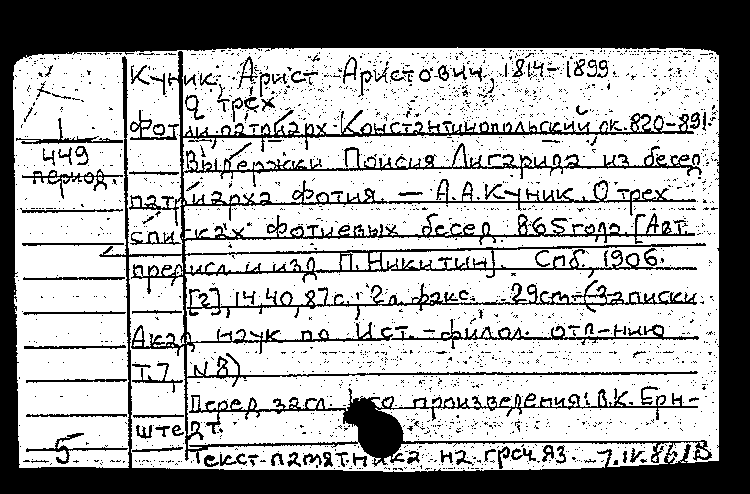 Куник, Арист Аристович, 1814-1899.
О трех
1
Фотий, патриарх Константинопольский, ок. 820-891.
449
Выдержки Поисия Лигарида из бесед
период.
патриарха Фотия. — А.А.Куник. О трех
списках Фотиевых бесед 865 года. [Авт.
предисл. и изд. П.Никитин]. Спб, 1906.
[2], 14, 40, 87 с.; 2 л. факс. 29 cm. (Записки
Акад. наук по Ист.-филол. отд-нию
Т.7, N 8).
Перед загл. произведения: В.К. Ерн-
штедт.
5
Текст памятника на греч. яз. 7.IV.86